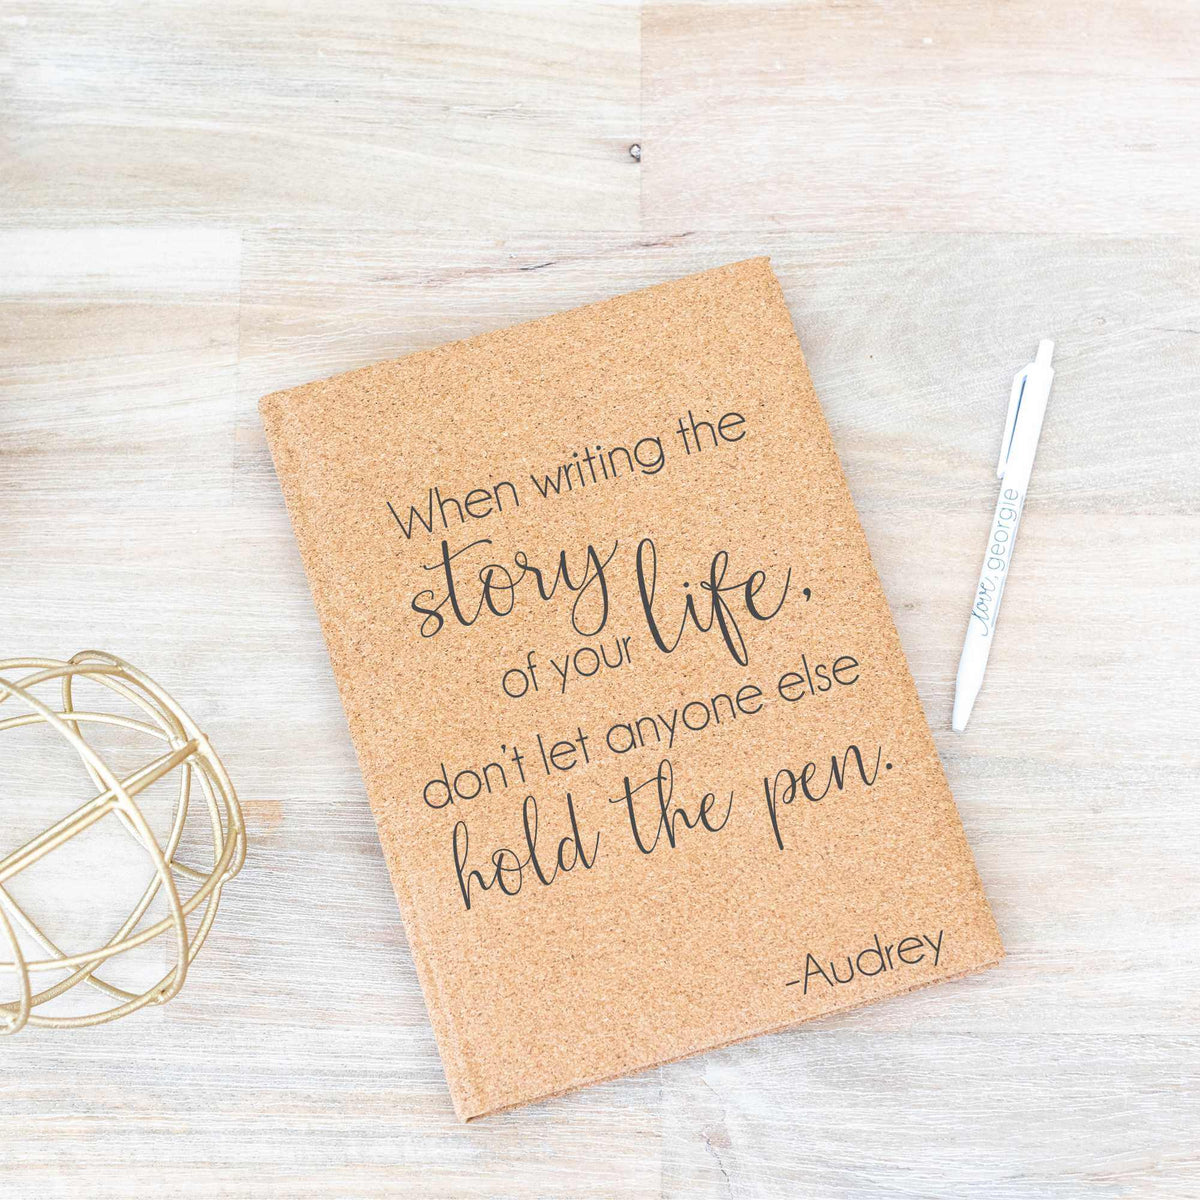 When writing the
story
of your life,
don't let anyone else
hold the pen.
-Audrey
love, georgie